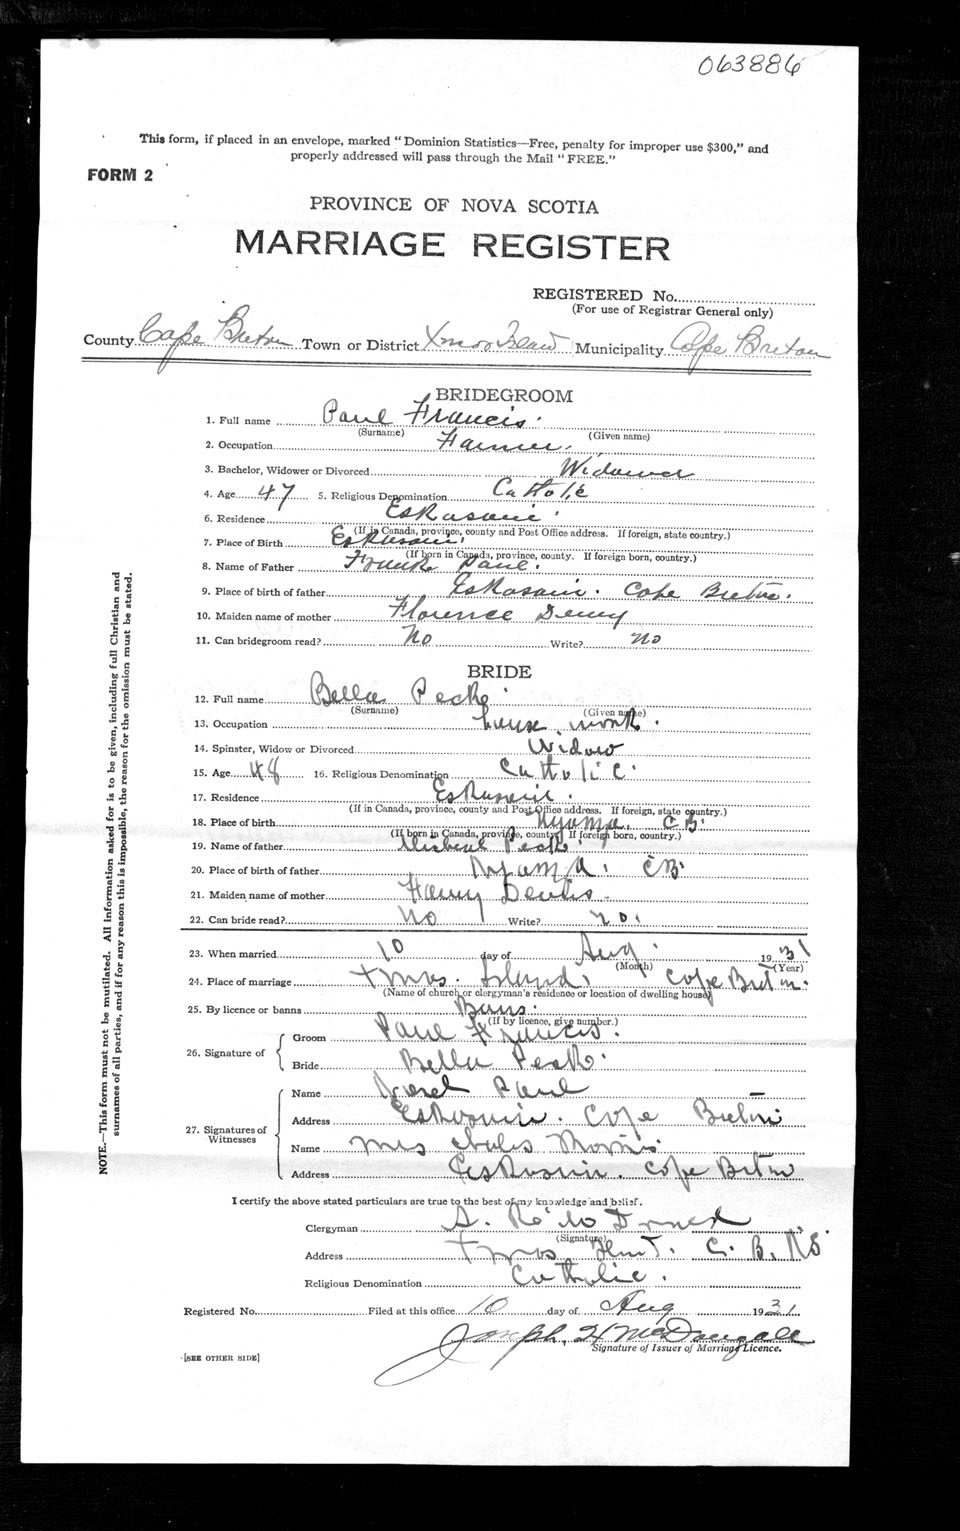 063886
This form, if placed in an envelope, marked "Dominion Statistics—Free, penalty for improper use $300," and
properly addressed will pass through the Mail "FREE."
FORM 2
PROVINCE OF NOVA SCOTIA
MARRIAGE REGISTER
REGISTERED No.
(For use of Registrar General only)
County Cape Breton Town or District Xmas Island Municipality Cape Breton
BRIDEGROOM
1. Full name Paul Francis
(Surname) (Given name)
2. Occupation Farmer.
3. Bachelor, Widower or Divorced Widower
4. Age 47 5. Religious Denomination Catholic
6. Residence Eskasoni
(If in Canada, province, county and Post Office address. If foreign, state country.)
7. Place of Birth Eskasoni
(If born in Canada, province, county. If foreign born, country.)
8. Name of Father Frank Paul.
9. Place of birth of father Eskasoni. Cape Breton.
10. Maiden name of mother Florence Denny
11. Can bridegroom read? No Write? No
BRIDE
12. Full name Bella Peck
(Surname) (Given name)
13. Occupation house work.
14. Spinster, Widow or Divorced Widow
15. Age 48 16. Religious Denomination Catholic.
17. Residence Eskasoni.
(If in Canada, province, county and Post Office address. If foreign, state country.)
18. Place of birth Nyanza, C B.
(If born in Canada, province, county. If foreign born, country.)
19. Name of father Micheal
20. Place of birth of father C B.
21. Maiden name of mother
22. Can bride read? No Write? no.
23. When married 10 day of Aug. 1931
(Month) (Year)
24. Place of marriage Xmas. Island, Cape Breton.
(Name of church or clergyman's residence or location of dwelling house)
25. By licence or banns Bans.
(If by licence, give number.)
26. Signature of
Groom Paul Francis.
Bride Bella Peck.
27. Signatures of Witnesses
Name Paul
Address Eskasoni. Cape Breton
Name Mrs Morris
Address Eskasoni. Cape Breton
I certify the above stated particulars are true to the best of my knowledge and belief.
Clergyman
(Signature)
Address Xmas C. B. N.S.
Religious Denomination Catholic.
Registered No. Filed at this office 10 day of Aug 1931
Joseph. H McDougall
Signature of Issuer of Marriage Licence.
[SEE OTHER SIDE]
NOTE.—This form must not be mutilated. All information asked for is to be given, including full Christian and
surnames of all parties, and if for any reason this is impossible, the reason for the omission must be stated.